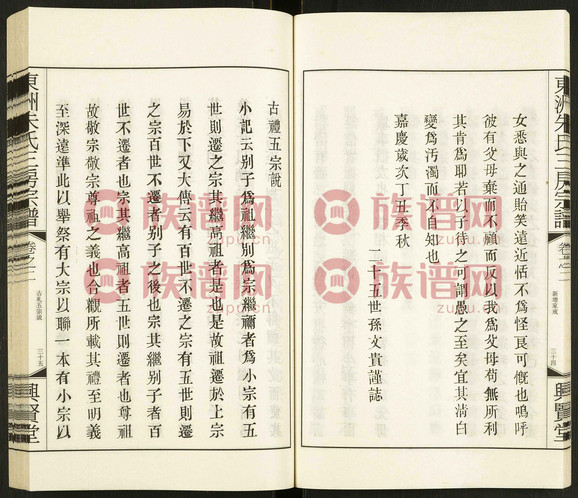 東洲朱氏三房宗譜
卷之二
新增家戒
三十四
興賢堂
女悉與之通貽笑遠近恬不爲怪良可慨也嗚呼
彼有父母棄而不顧而又以我爲父母苟無所利
其肯爲耶若以子待之可謂愚之至矣宜其清白
變爲汚濁而不自知也
嘉慶歲次丁丑季秋
二十五世孫文貴謹誌
古禮五宗說
小記云别子爲祖繼别爲宗繼禰者爲小宗有五
世則遷之宗其繼高祖者是也是故祖遷於上宗
易於下又大傳云有百世不遷之宗有五世則遷
之宗百世不遷者别子之後也宗其繼别子者百
世不遷者也宗其繼高祖者五世則遷者也尊祖
故敬宗敬宗尊祖之義也合觀所載其禮至明義
至深遠準此以舉祭有大宗以聯一本有小宗以
東洲朱氏三房宗譜
卷之二
古禮五宗說
三十五
興賢堂
族谱网
zupu.cn
族谱网
zupu.cn
族谱网
zupu.cn
族谱网
zupu.cn